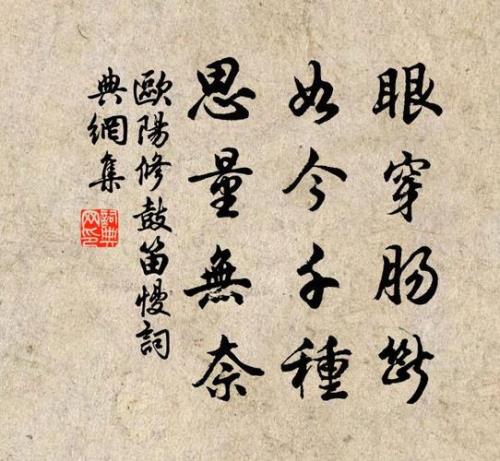 眼穿肠断
如今千種
思量無奈
歐陽修鼓笛慢詞
典網集
詞典
网印